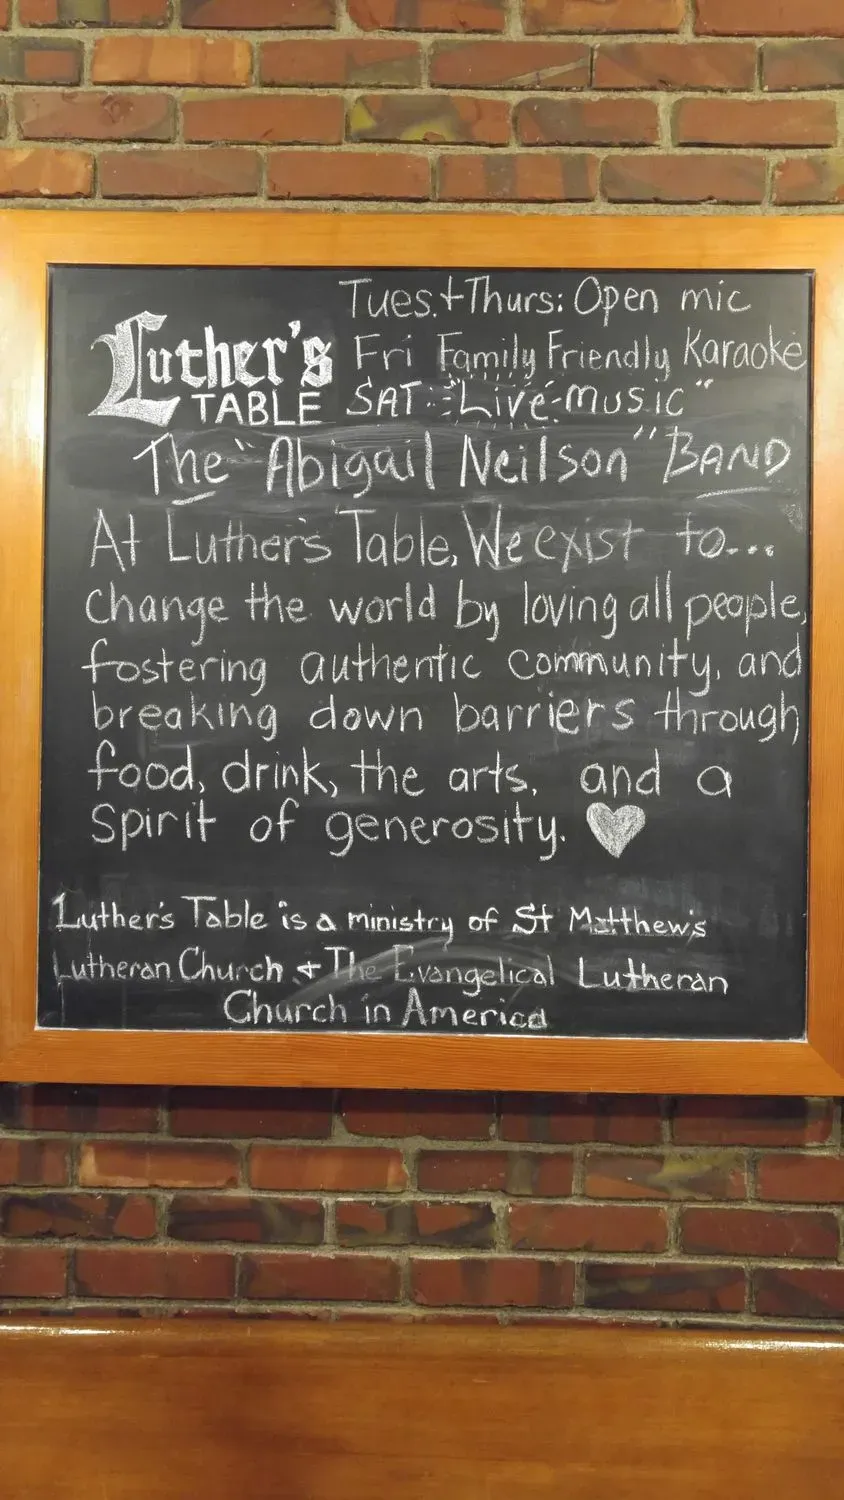 Tues.+Thurs: Open mic
Luther's
TABLE
Fri Family Friendly Karaoke
SAT "Live music"
The "Abigail Neilson" BAND
At Luther's Table, We exist to...
change the world by loving all people,
fostering authentic community, and
breaking down barriers through
food, drink, the arts, and a
Spirit of generosity. ♥
Luther's Table is a ministry of St Matthew's
Lutheran Church + The Evangelical Lutheran
Church in America